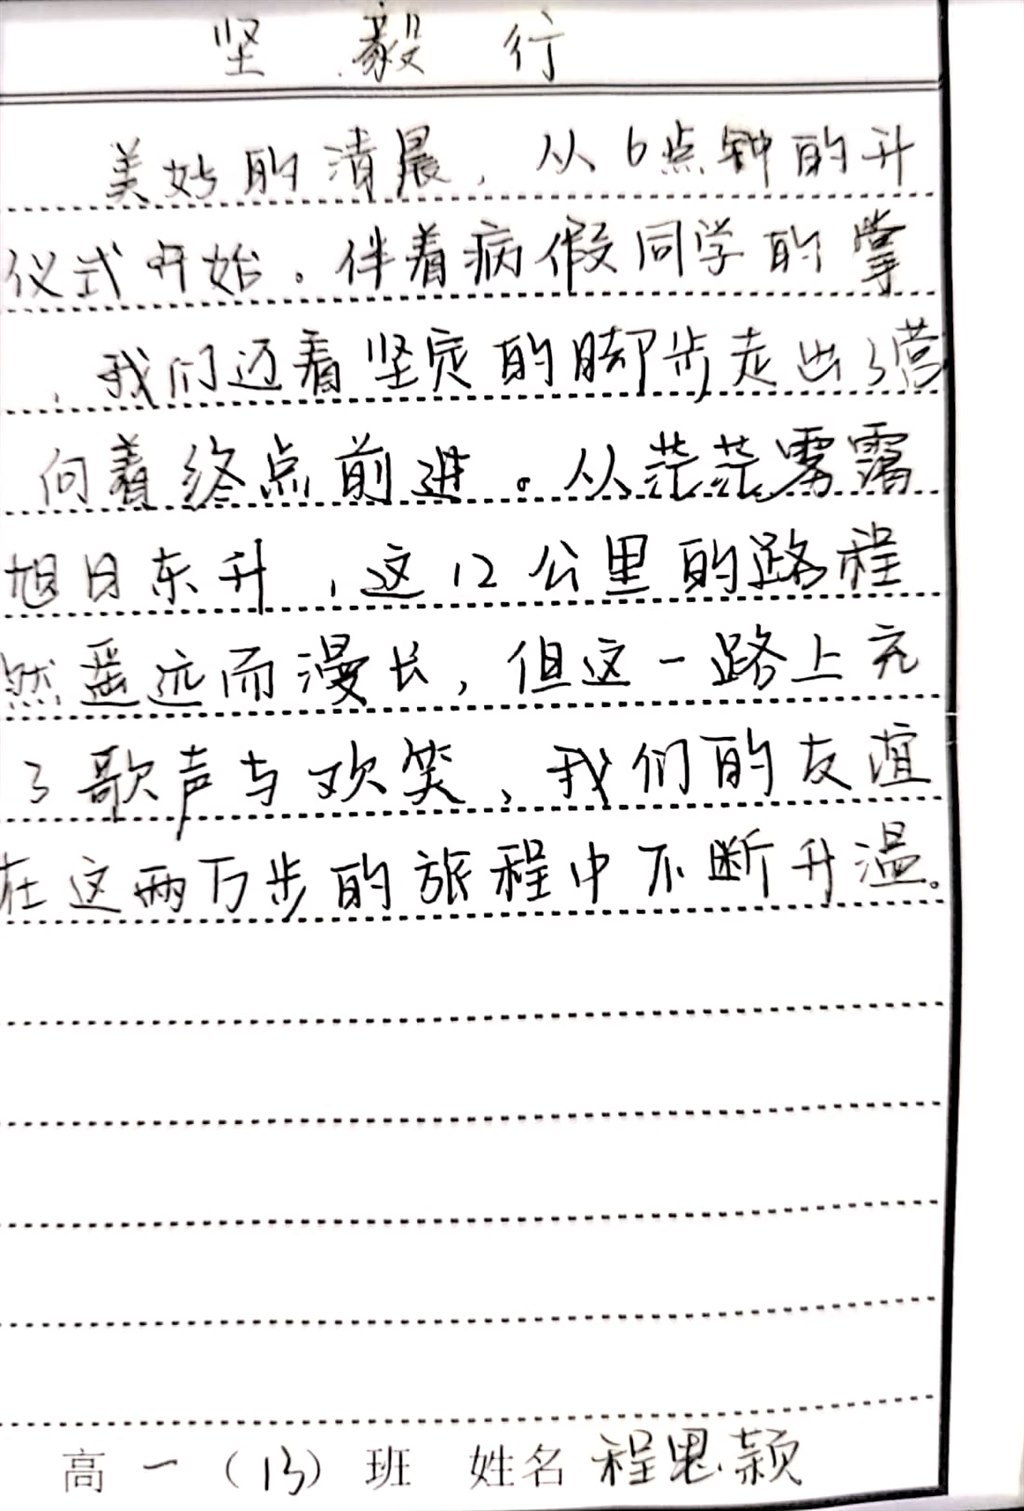 坚毅行
美妙的清晨，从6点钟的升
仪式开始。伴着病假同学的掌
，我们迈着坚定的脚步走出了营
向着终点前进。从茫茫雾霭
旭日东升，这12公里的路程
然遥远而漫长，但这一路上充
了歌声与欢笑，我们的友谊
在这两万步的旅程中不断升温。
高一（13）班 姓名 程思颖